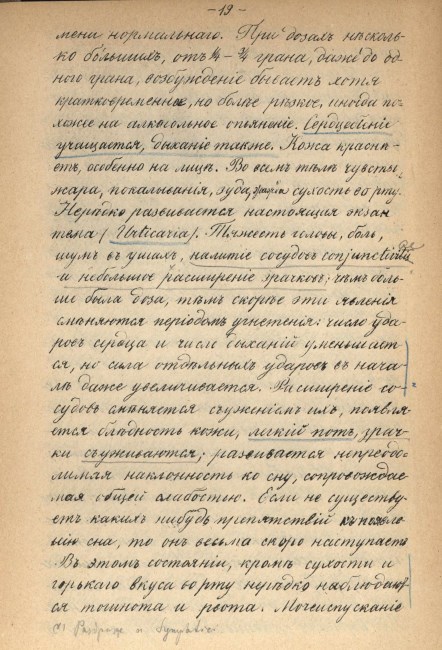 -19-
мени нормальнаго. При дозахъ нѣсколь-
ко бо́льшихъ, отъ ¼ — ¾ грана, даже до од-
ного грана, возбужденіе бываетъ хотя
кратковременнѣе, но болѣе рѣзкое, иногда по-
хожее на алкогольное опьянѣніе. Сердцебіеніе
учащается, дыханіе также. Кожа краснѣ-
етъ, особенно на лицѣ. Во всемъ тѣлѣ чувство
жара, покалыванія, зуда, сухость во рту.
Нерѣдко развивается настоящая экзан
тема (Urticaria). Тяжесть головы, боль,
шумъ въ ушахъ, налитіе сосудовъ conjunctivae
и небольшое расширеніе зрачковъ; чѣмъ боль-
ше была доза, тѣмъ скорѣе эти явленія
смѣняются періодомъ угнетенія: число уда
ровъ сердца и число дыханій уменьшает
ся, но сила отдѣльныхъ ударовъ въ нача-
лѣ даже увеличивается. Расширеніе со-
судовъ смѣняется съуженіемъ ихъ, появля-
ется блѣдность кожи, легкій потъ, зрач-
ки съуживаются; развивается непреодо-
лимая наклонность ко сну, сопровождае
мая общей слабостью. Если не существу-
етъ какихъ нибудь препятствій къ появле
нію сна, то онъ весьма скоро наступаетъ
Въ этомъ состояніи, кромѣ сухости и
горькаго вкуса во рту нерѣдко наблюдают
ся тошнота и рвота. Мочеиспусканіе